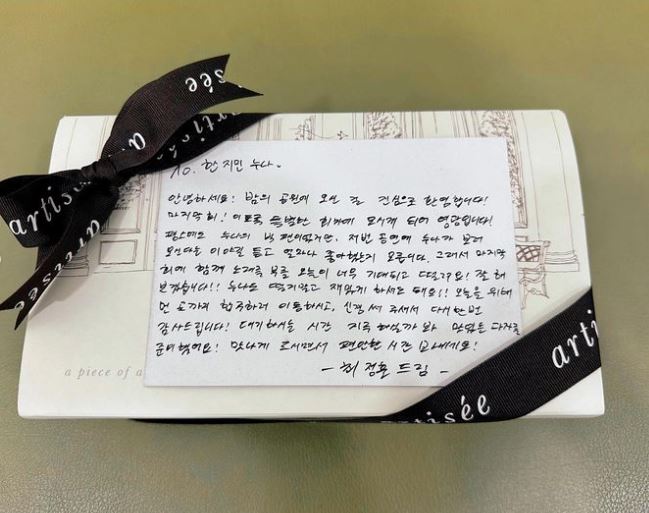 artisée
To. 한지민 누나.
안녕하세요! 밤의 공원에 오신 걸 진심으로 환영합니다!
마지막회! 이토록 특별한 회차에 모시게 되어 영광입니다!
평소에도 누나의 빅 팬이었지만, 저번 공연에 누나가 보러
오신다는 이야길 듣고 얼마나 좋아했는지 모릅니다. 그래서 마지막
회에 함께 노래를 부를 오늘이 너무 기대되고 떨려요! 잘 해
보겠습니다!! 누나도 떨지말고 재밌게 하셔도 돼요!! 오늘을 위해
먼 곳까지 합주하러 이동하시고, 신경 써 주셔서 다시 한번
감사드립니다! 대기하시는 시간 지루하실까 봐 맛있는 다과를
준비했어요! 맛나게 드시면서 편안한 시간 보내세요!
- 최정훈 드림 -
a piece of a
artisée
arti